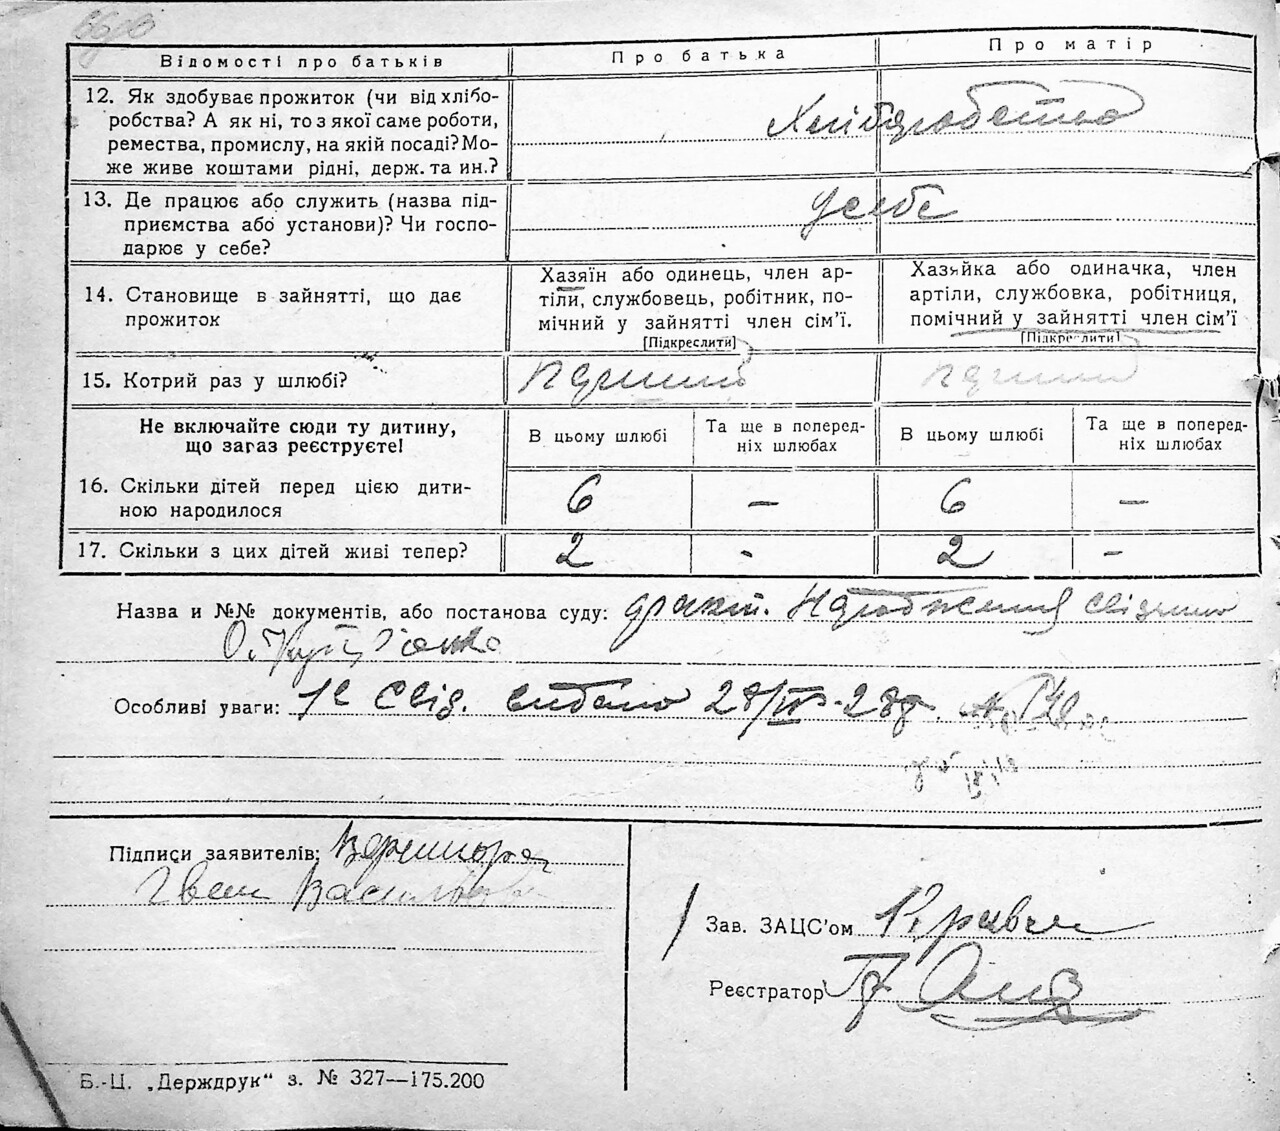 Відомості про батьків
Про батька
Про матір
12. Як здобуває прожиток (чи від хлібо-
робства? А як ні, то з якої саме роботи,
ремества, промислу, на якій посаді? Мо-
же живе коштами рідні, держ. та ин.?
Хліборобство
13. Де працює або служить (назва під-
приємства або установи)? Чи госпо-
дарює у себе?
У себе
14. Становище в зайнятті, що дає
прожиток
Хазяїн або одинець, член ар-
тіли, службовець, робітник, по-
мічний у зайнятті член сім'ї.
[Підкреслити]
Хазяйка або одиначка, член
артіли, службовка, робітниця,
помічний у зайнятті член сім'ї
[Підкреслити]
15. Котрий раз у шлюбі?
Не включайте сюди ту дитину,
що загаз реєструєте!
В цьому шлюбі
Та ще в поперед-
ніх шлюбах
В цьому шлюбі
Та ще в поперед-
ніх шлюбах
16. Скільки дітей перед цією дити-
ною народилося
6 — 6 —
17. Скільки з цих дітей живі тепер?
2 - 2 -
Назва и №№ документів, або постанова суду:
Особливі уваги: Свід. видано 28/
Підписи заявителів:
Іван
Зав. ЗАЦС'ом
Реєстратор
Б.-Ц. „Держдрук“ з. № 327—175.200